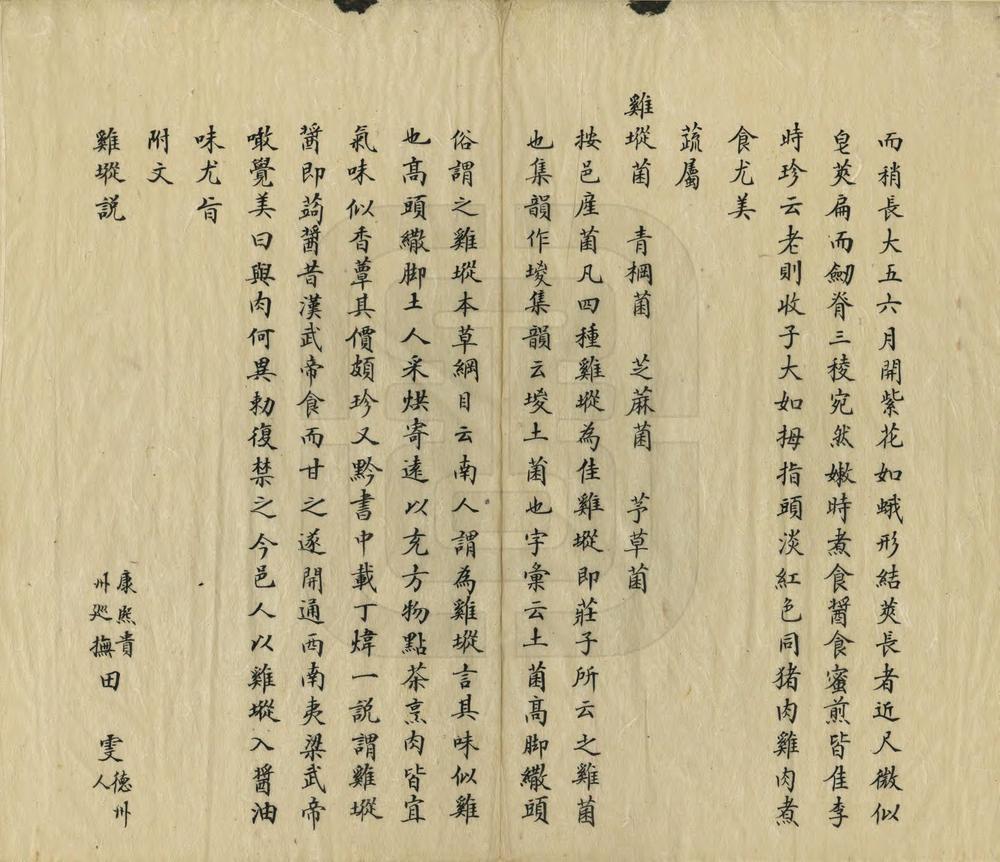 而稍長大五六月開紫花如蛾形結莢長者近尺微似
皂莢扁而劒脊三稜宛然嫩時煮食醤食蜜煎皆佳李
時珍云老則收子大如拇指頭淡紅色同猪肉雞肉煮
食尤美
蔬屬
雞㙡菌 青棡菌 芝蔴菌 芧草菌
按邑産菌凡四種雞㙡為佳雞㙡即莊子所云之雞菌
也集韻作堫集韻云堫土菌也字彙云土菌高脚繖頭
俗謂之雞㙡本草綱目云南人謂為雞㙡言其味似雞
也高頭繖脚土人采烘寄遠以充方物點茶烹肉皆宜
氣味似香蕈其價頗珍又黔書中載丁煒一説謂雞㙡
醤即蒟醤昔漢武帝食而甘之遂開通西南夷梁武帝
噉覺美曰與肉何異勅復禁之今邑人以雞㙡入醤油
味尤旨
附文
雞㙡説 康熙貴州巡撫田 雯 德州人